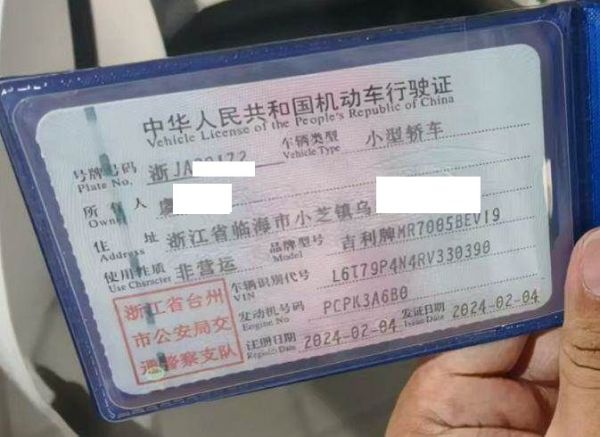 中华人民共和国机动车行驶证
Vehicle License of the People's Republic of China
号牌号码 Plate No. 浙JA 车辆类型 Vehicle Type 小型轿车
所有人 Owner
住址 Address 浙江省临海市小芝镇乌
使用性质 Use Character 非营运 品牌型号 Model 吉利牌MR7005BEV19
车辆识别代号 VIN L6T79P4N4RV330390
发动机号码 Engine No. PCPK3A6B0
注册日期 Register Date 2024-02-04 发证日期 Issue Date 2024-02-04
浙江省台州
市公安局交
通警察支队